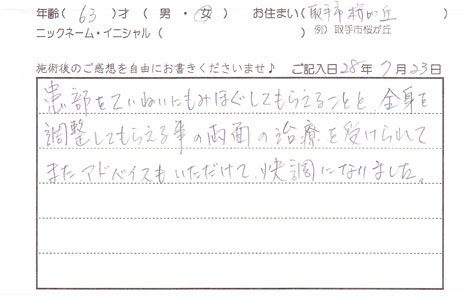 年齢( 63 )才 ( 男 ・ 女 ) お住まい( 取手市桜が丘 )
ニックネーム・イニシャル ( ) 例) 取手市桜が丘
施術後のご感想を自由にお書きくださいませ♪ ご記入日 28年 7月 23日
患部をていねいにもみほぐしてもらえることと、全身を
調整してもらえる事の両面の治療を受けられて
また、アドバイスもいただけて、快調になりました。